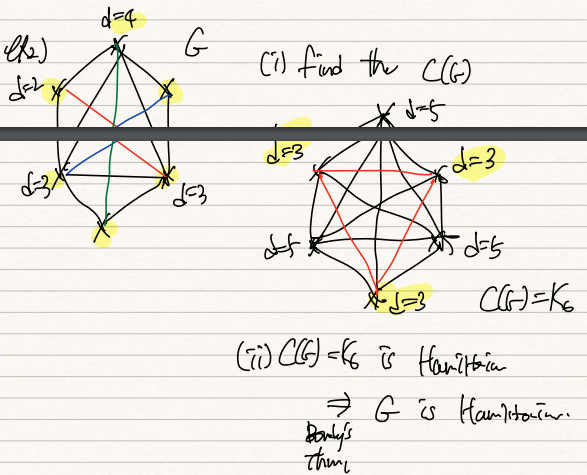 d=4
ex2)
G
(i) find the C(G)
d=2
d=5
d=3
d=3
d=3
d=3
d=5
d=5
d=3
C(G)=K6
(ii) C(G)=K6 is Hamiltonian
⇒ G is Hamiltonian.
Bondy's
thm,